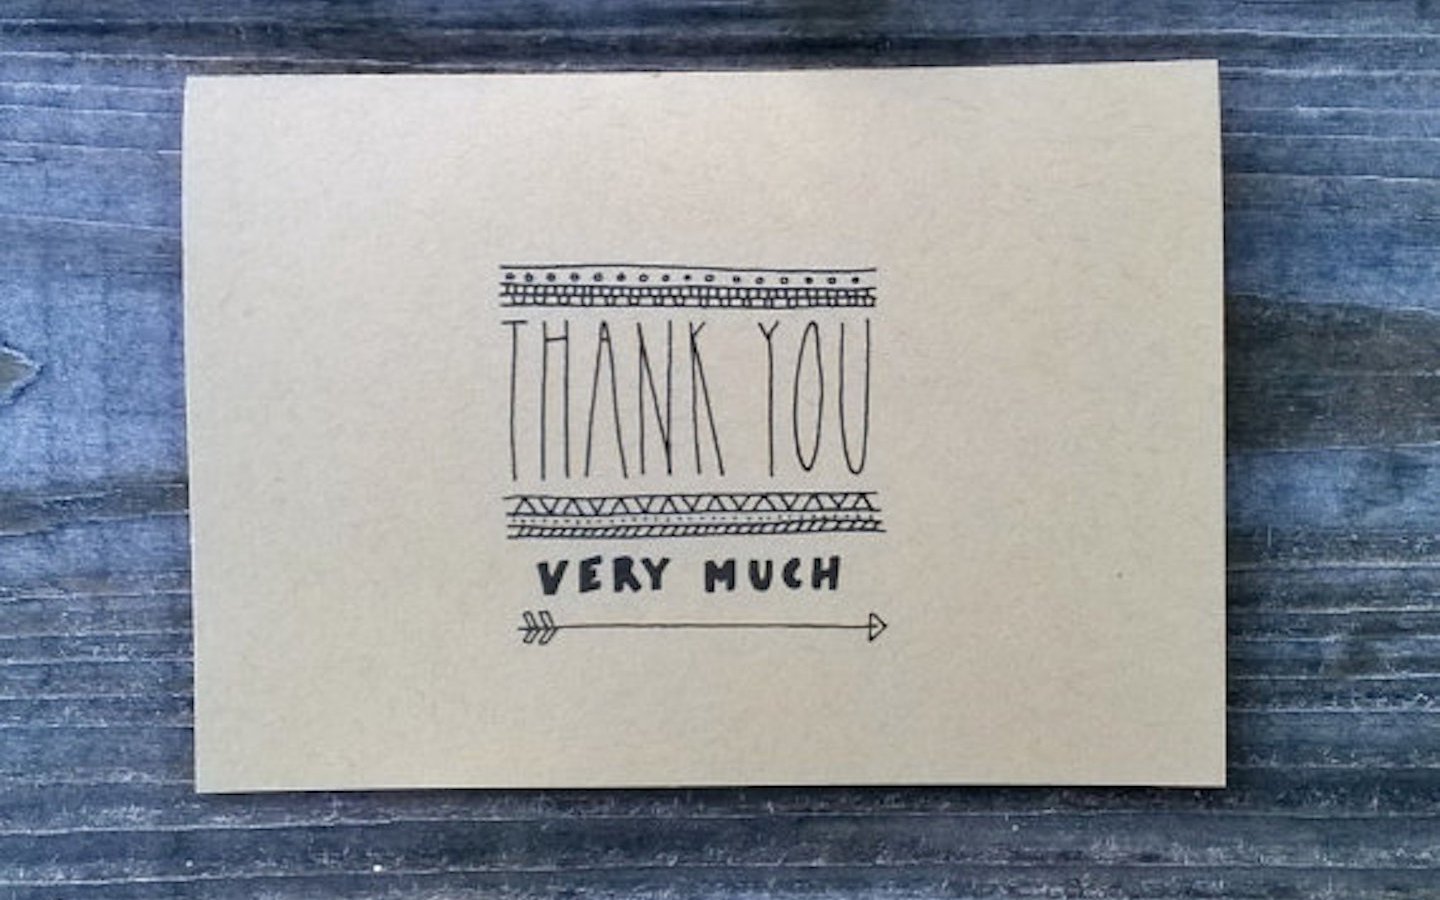 THANK YOU
VERY MUCH